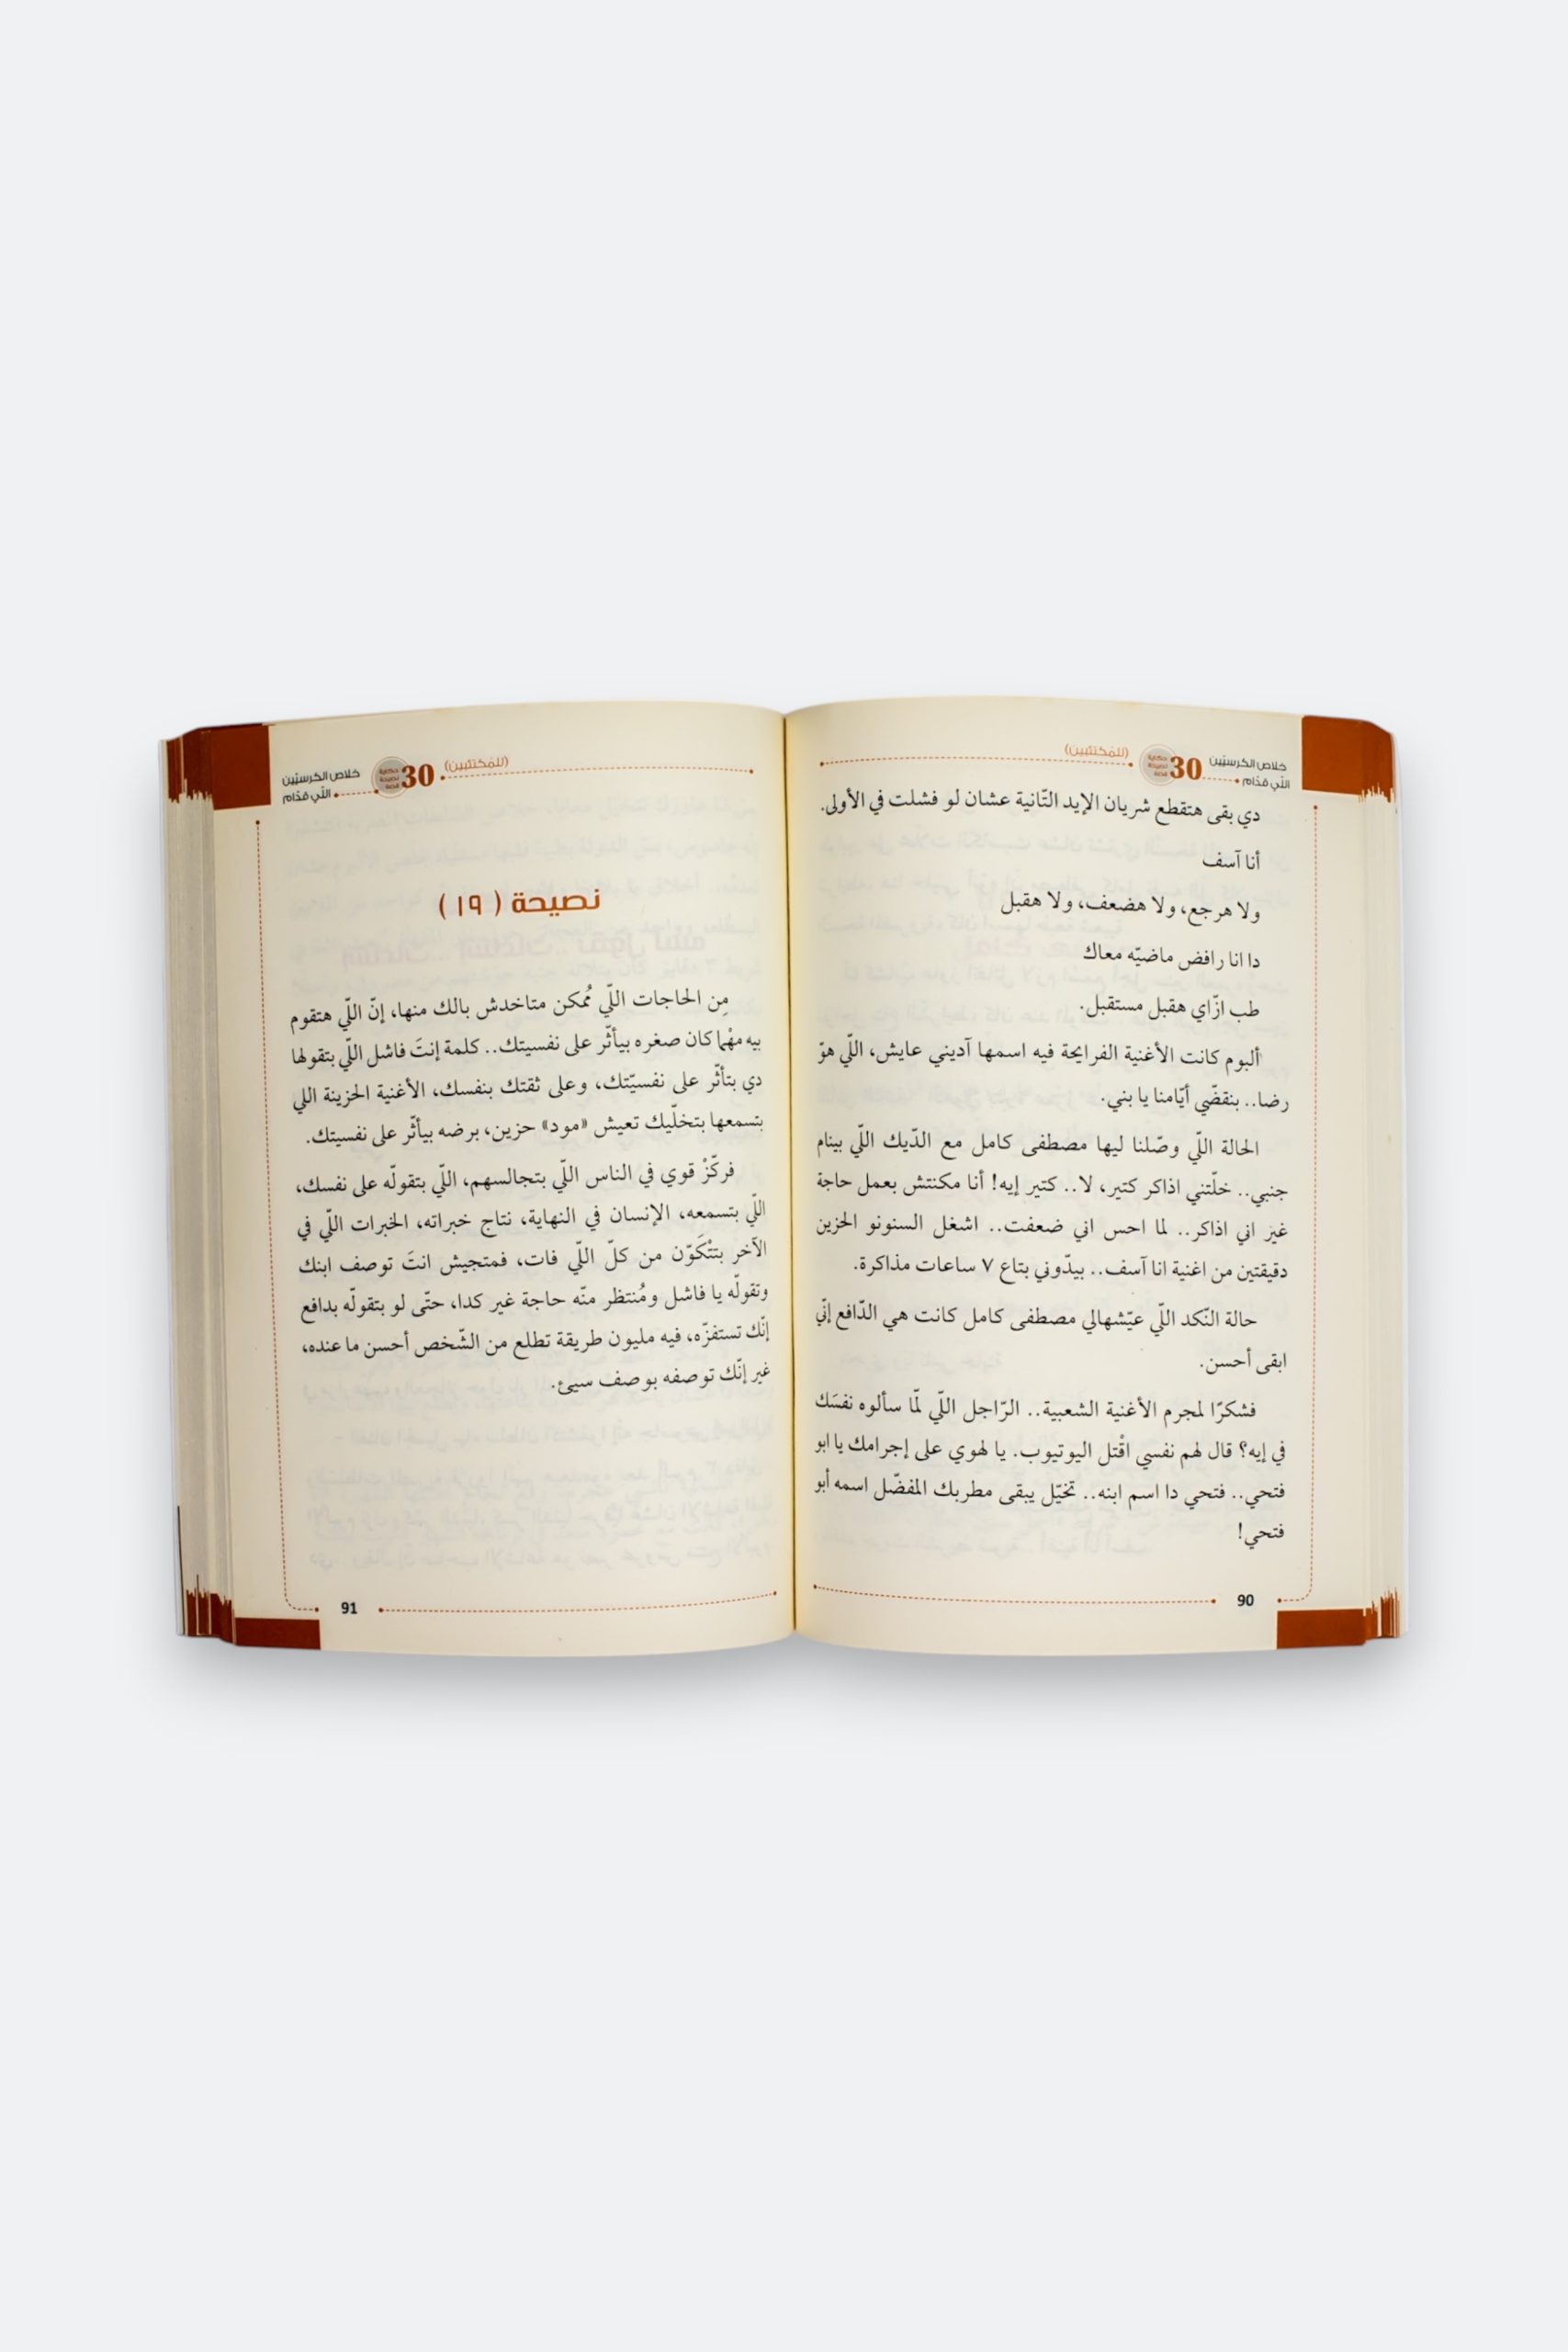 خلاص الكرسيّين
اللّي قدّام
30
حكاية
نصيحة
قصة
(للمُكتئبين)
دي بقى هتقطع شريان الإيد التّانية عشان لو فشلت في الأولى.
أنا آسف
ولا هرجع، ولا هضعف، ولا هقبل
دا انا رافض ماضيّه معاك
طب ازّاي هقبل مستقبل.
ألبوم كانت الأغنية الفرايحة فيه اسمها آديني عايش، اللّي هوّ
رضا.. بنقضّي أيّامنا يا بني.
الحالة اللّي وصّلنا ليها مصطفى كامل مع الدّيك اللّي بينام
جنبي.. خلّتني اذاكر كتير، لا.. كتير إيه! أنا مكنتش بعمل حاجة
غير اني اذاكر.. لما احس اني ضعفت.. اشغل السنونو الحزين
دقيقتين من اغنية انا آسف.. بيدّوني بتاع ٧ ساعات مذاكرة.
حالة النّكد اللّي عيّشهالي مصطفى كامل كانت هي الدّافع إنّي
ابقى أحسن.
فشكرًا لمجرم الأغنية الشعبية.. الرّاجل اللّي لمّا سألوه نفسَك
في إيه؟ قال لهم نفسي اقْتل اليوتيوب. يا لهوي على إجرامك يا ابو
فتحي.. فتحي دا اسم ابنه.. تخيّل يبقى مطربك المفضّل اسمه أبو
فتحي!
90
خلاص الكرسيّين
اللّي قدّام
30
حكاية
نصيحة
قصة
(للمُكتئبين)
نصيحة (١٩)
مِن الحاجات اللّي مُمكن متاخدش بالك منها، إنّ اللّي هتقوم
بيه مهْما كان صغره بيأثّر على نفسيتك.. كلمة إنتَ فاشل اللّي بتقولها
دي بتأثّر على نفسيّتك، وعلى ثقتك بنفسك، الأغنية الحزينة اللي
بتسمعها بتخلّيك تعيش «مود» حزين، برضه بيأثّر على نفسيتك.
فركّزْ قوي في الناس اللّي بتجالسهم، اللّي بتقولّه على نفسك،
اللّي بتسمعه، الإنسان في النهاية، نتاج خبراته، الخبرات اللّي في
الآخر بتتْكَوّن من كلّ اللّي فات، فمتجيش انتَ توصف ابنك
وتقولّه يا فاشل ومُنتظر منّه حاجة غير كدا، حتّى لو بتقولّه بدافع
إنّك تستفزّه، فيه مليون طريقة تطلع من الشّخص أحسن ما عنده،
غير إنّك توصفه بوصف سيئ.
91